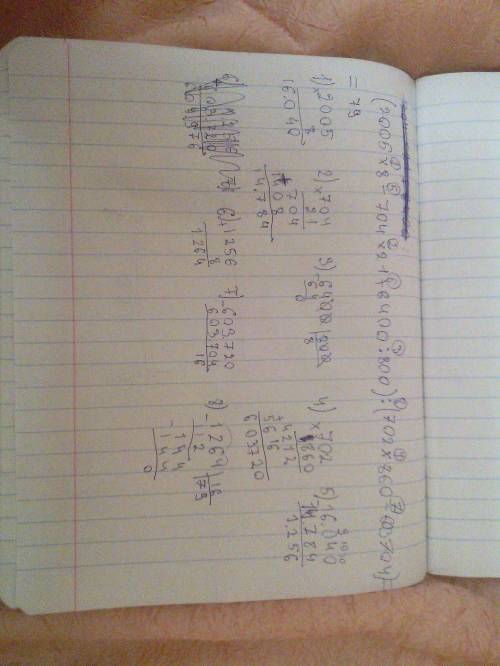 (2005×8-704×21+6400:800):(702×860-603704)=
=79
1) ×2005
8
16.040
2) ×704
21
704
1408
14.784
3) -6400 |800
64 8
0
4) ×702
860
4212
+5616
603720
5) -16.040
14.784
1.256
6) +1256
8
1264
7) -603720
603704
16
8) -1264 |16
112 79
-144
144
0